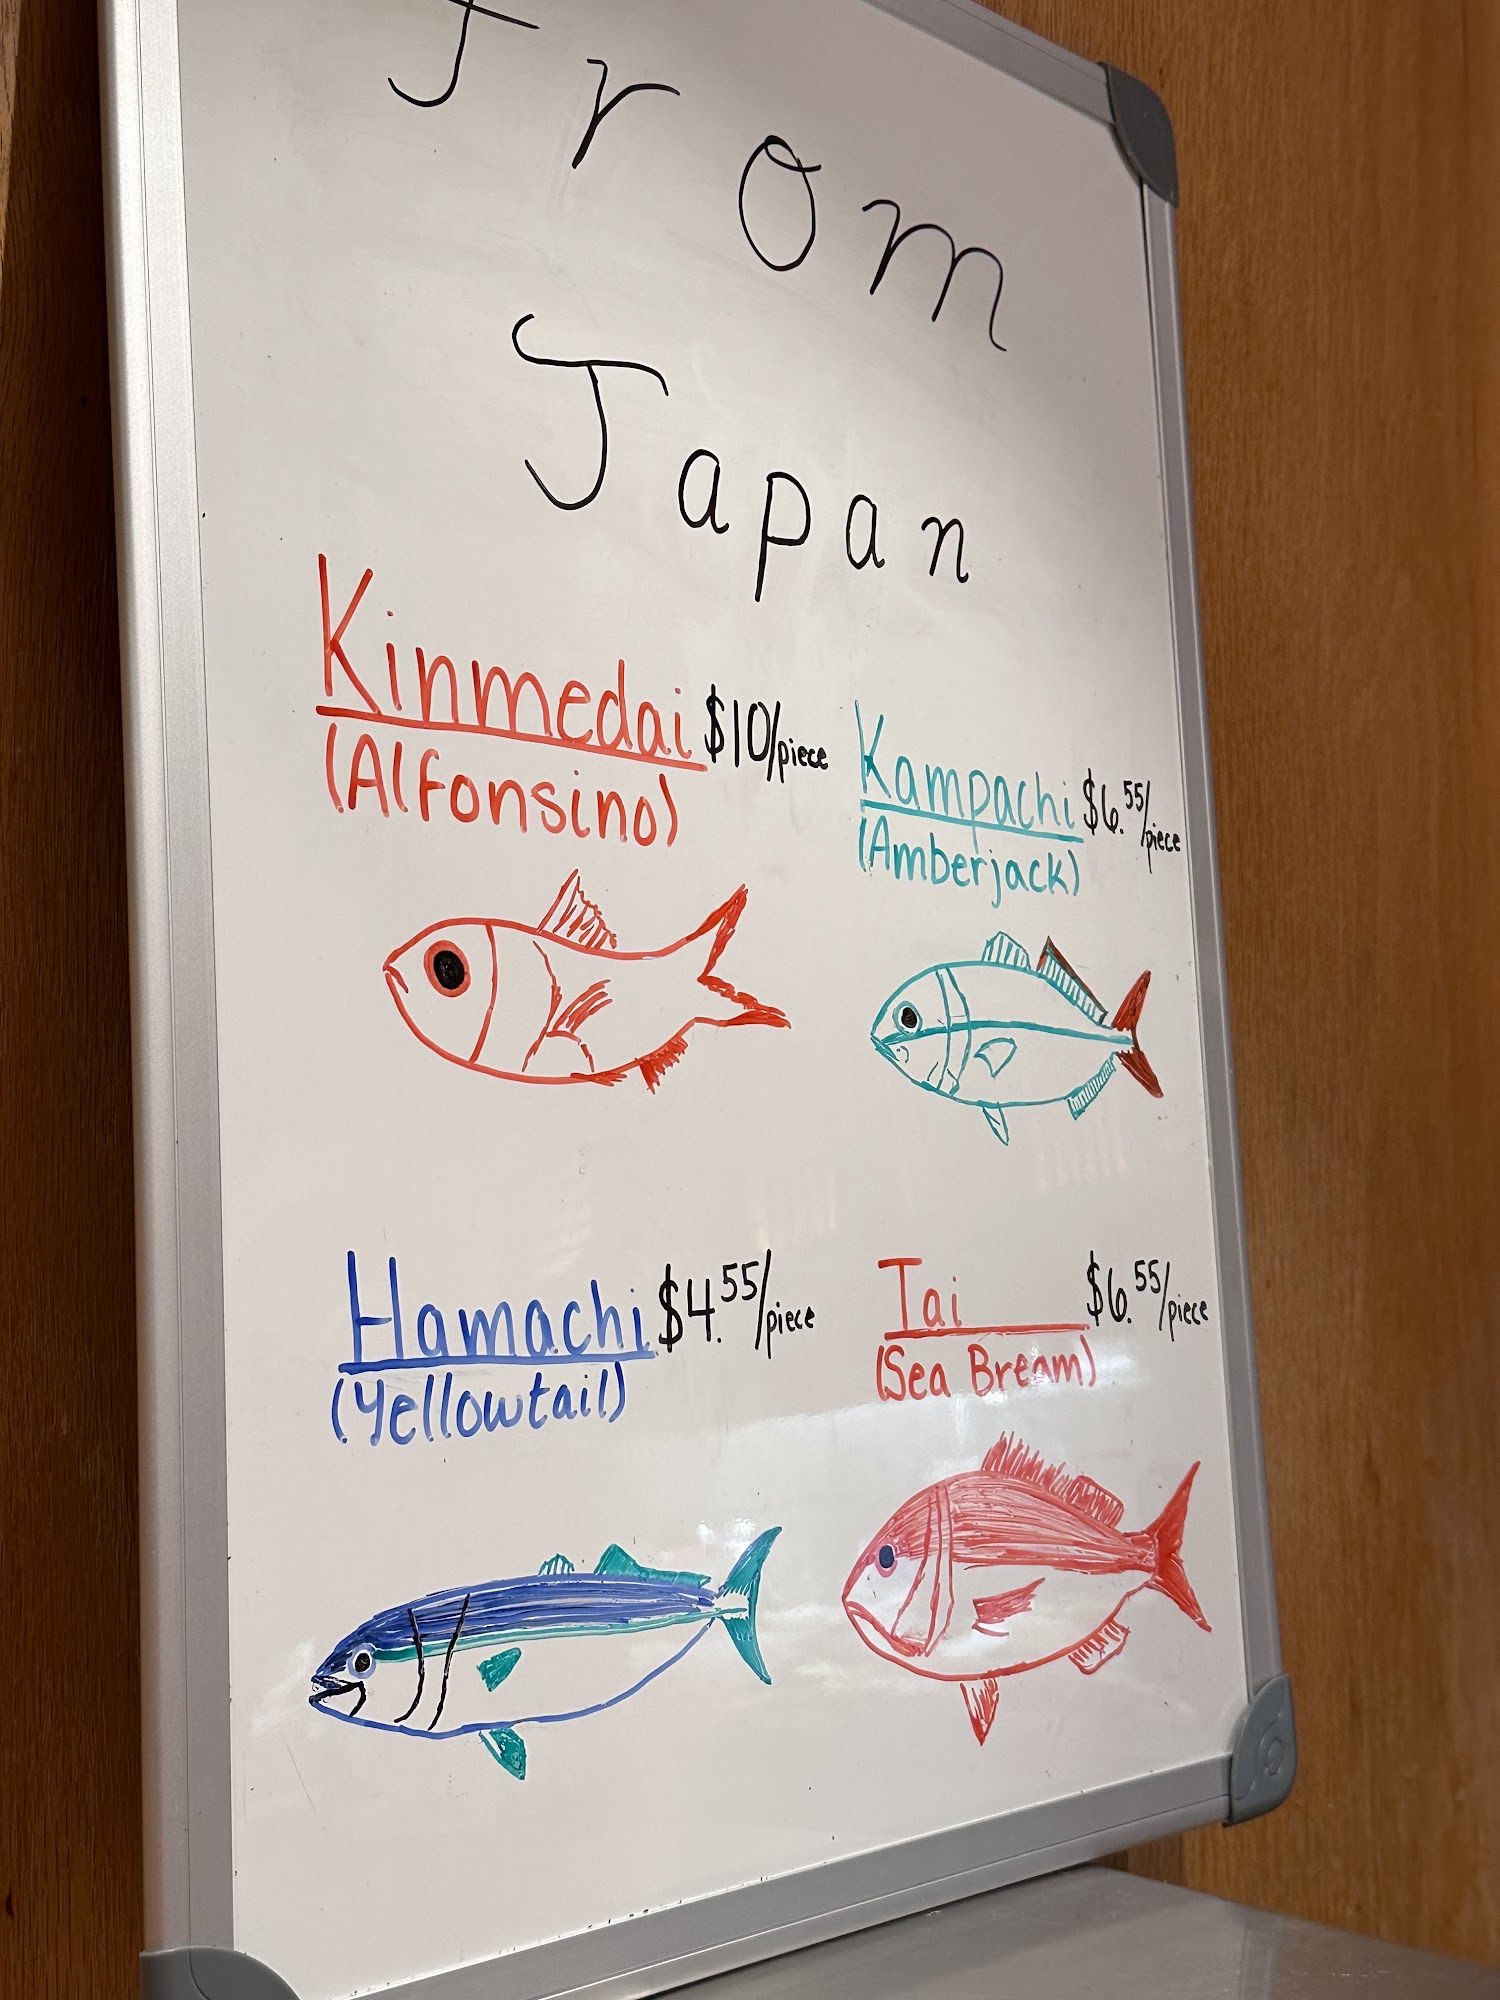 From
Japan
Kinmedai $10/piece
(Alfonsino)
Kampachi $6.55/piece
(Amberjack)
Hamachi $4.55/piece
(Yellowtail)
Tai $6.55/piece
(Sea Bream)